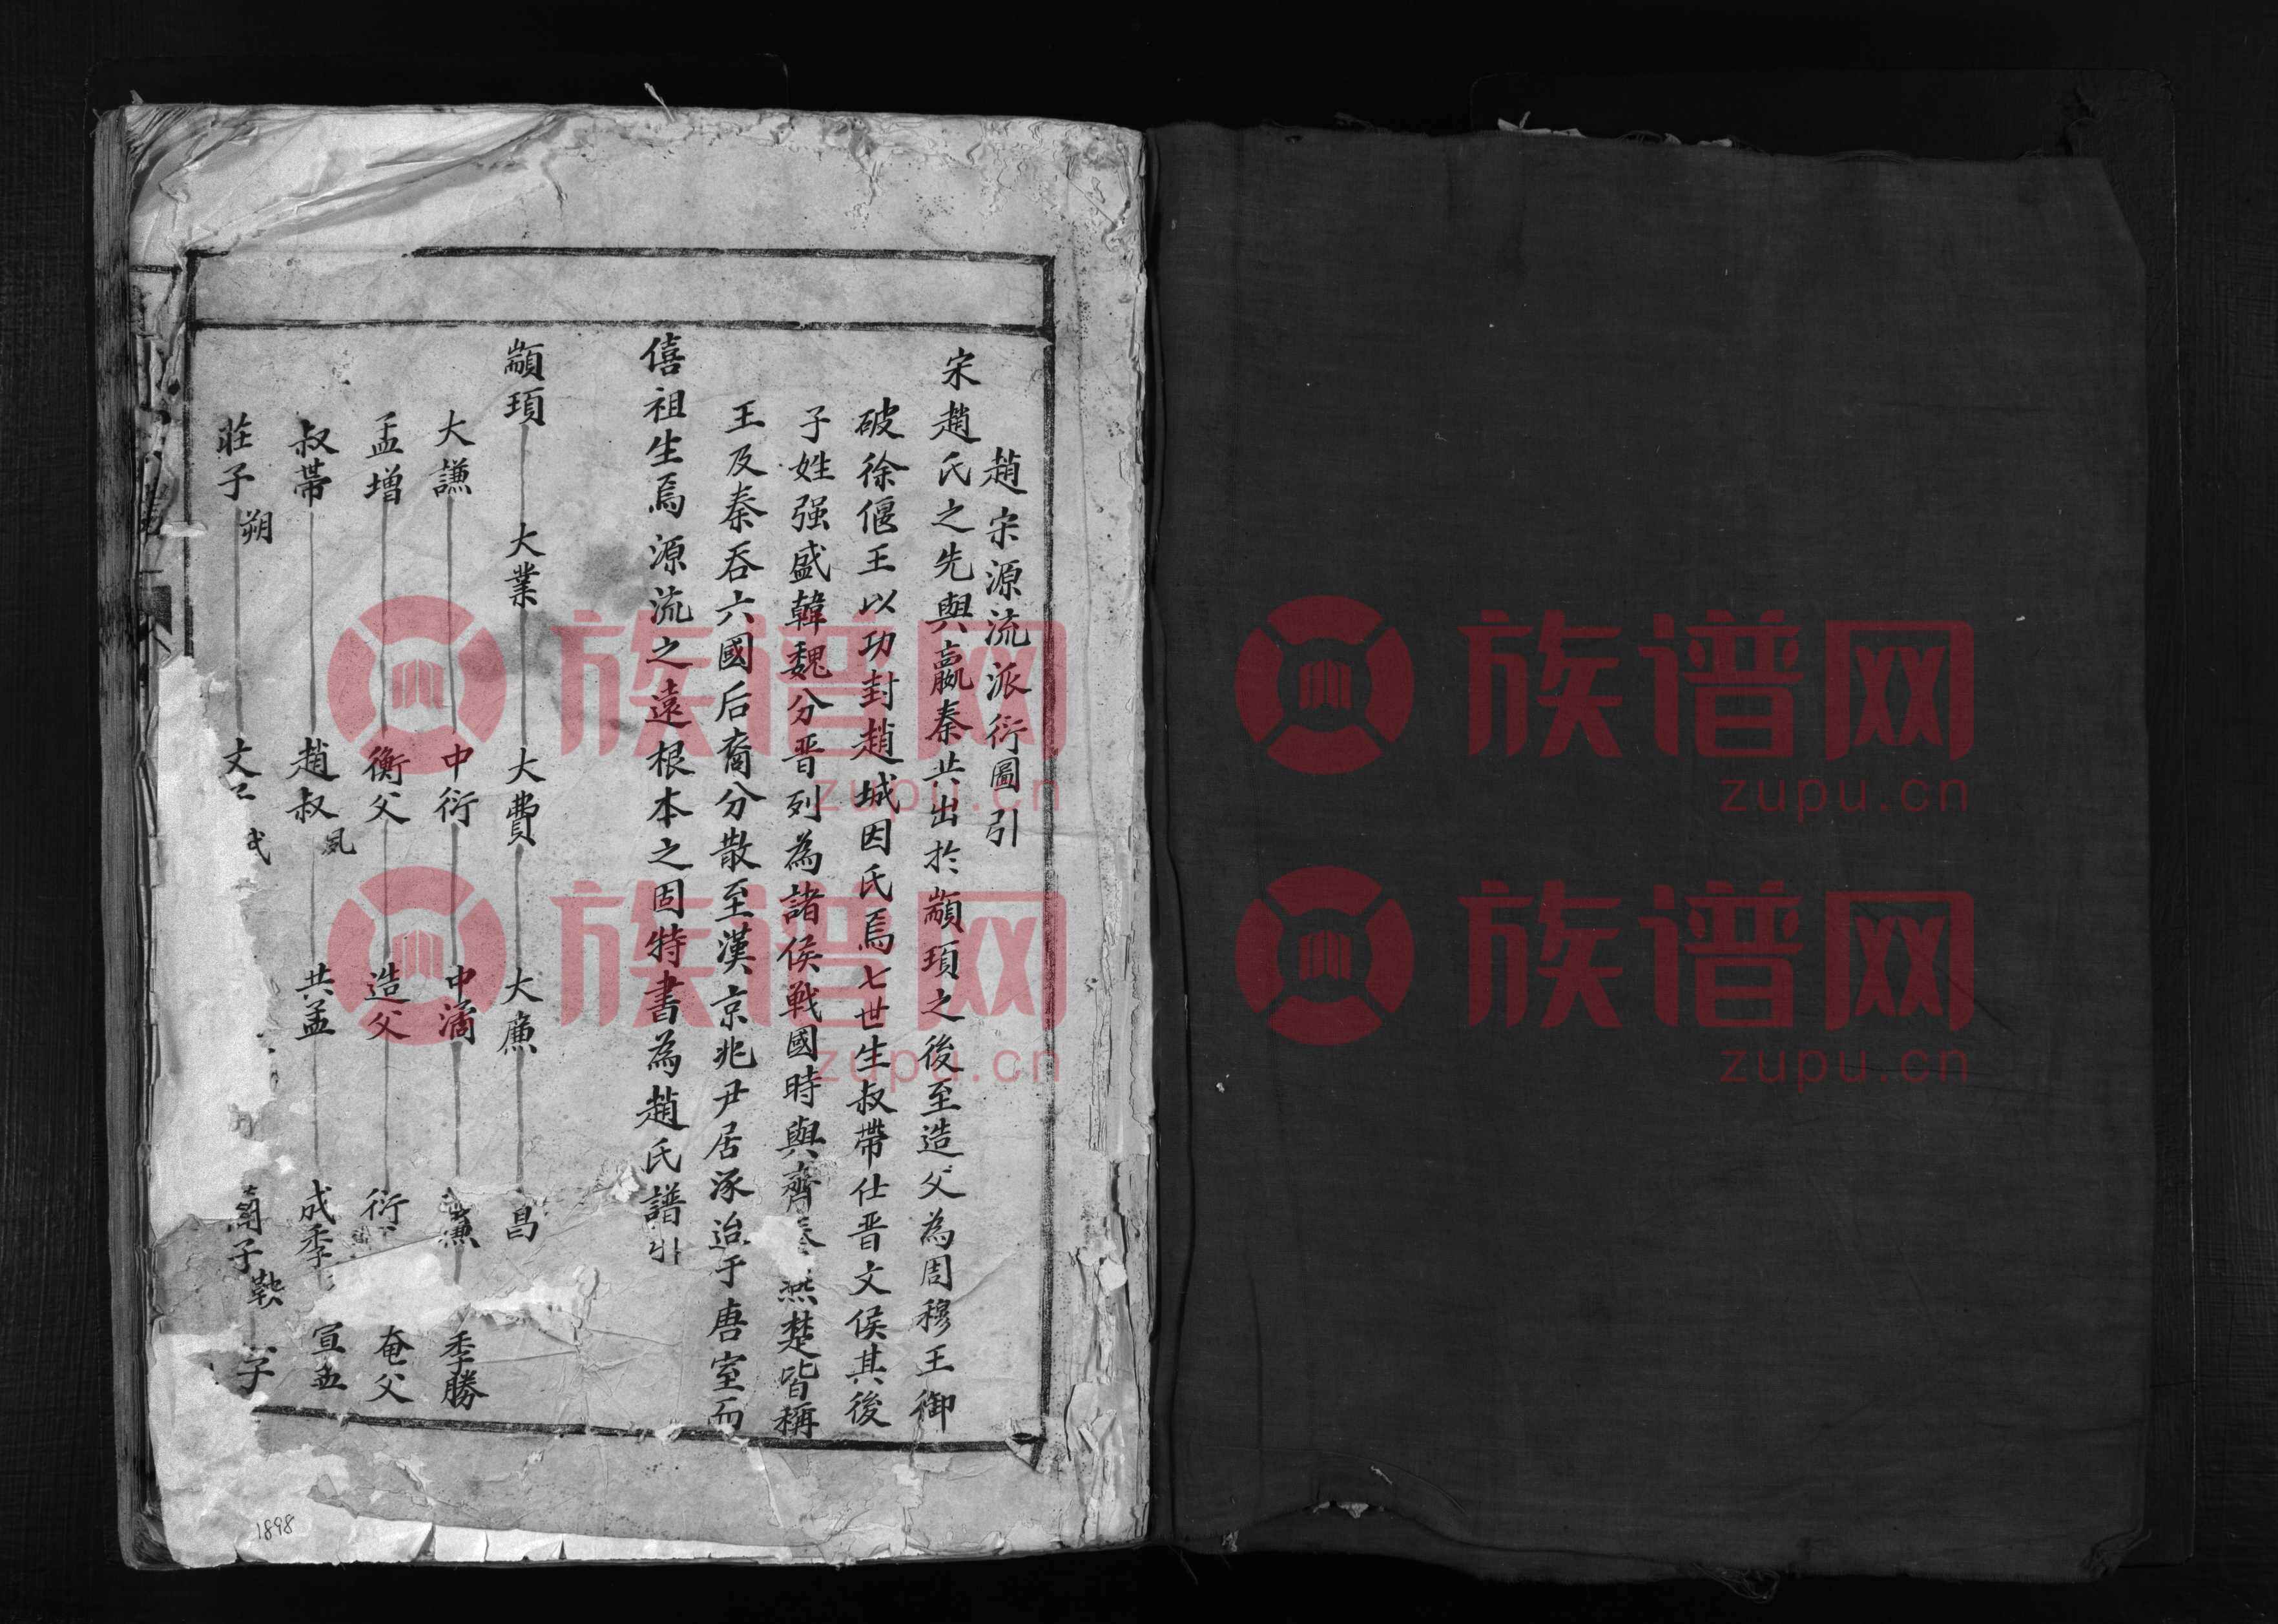 趙宋源流派衍圖引
宋趙氏之先與嬴秦共出於顓頊之後至造父為周穆王御
破徐偃王以功封趙城因氏焉七世生叔帶仕晋文侯其後
子姓强盛韓魏分晋列為諸侯戦國時與齊秦燕楚皆稱
王及秦吞六國后裔分散至漢京兆尹居涿迨于唐室而
僖祖生焉源流之遠根本之固特書為趙氏譜引
顓頊 大業 大費 大廉 昌
大謙 中衍 中潏 季勝
孟增 衡父 造父 衍 奄父
叔帶 趙叔 夙 共孟 成季 宣孟
莊子 朔 文 武 子 鞅 子
1898
族谱网
zupu.cn
族谱网
zupu.cn
族谱网
zupu.cn
族谱网
zupu.cn